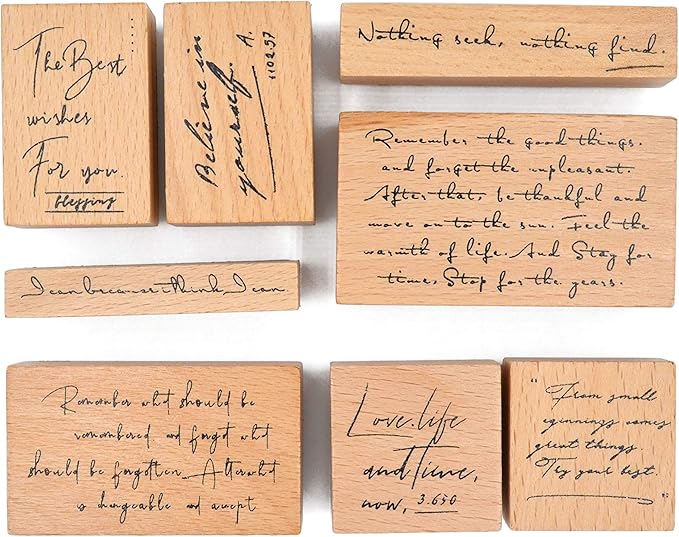 The Best
wishes
For you.
blessing
Believe in
yourself. A.
110257
Nothing seek, nothing find.
Remember the good things.
and forget the unpleasant.
After that, be thankful and
move on to the sun. Feel the
warmth of life. And Stay for
time, Stop for the years.
I can because i think I can.
Remember what should be
remembered and forget what
should be forgotten. Alter what
is changeable and accept
Love. life
and Time,
now, 3.650
"From small
eginnings comes
great things.
Try your best."